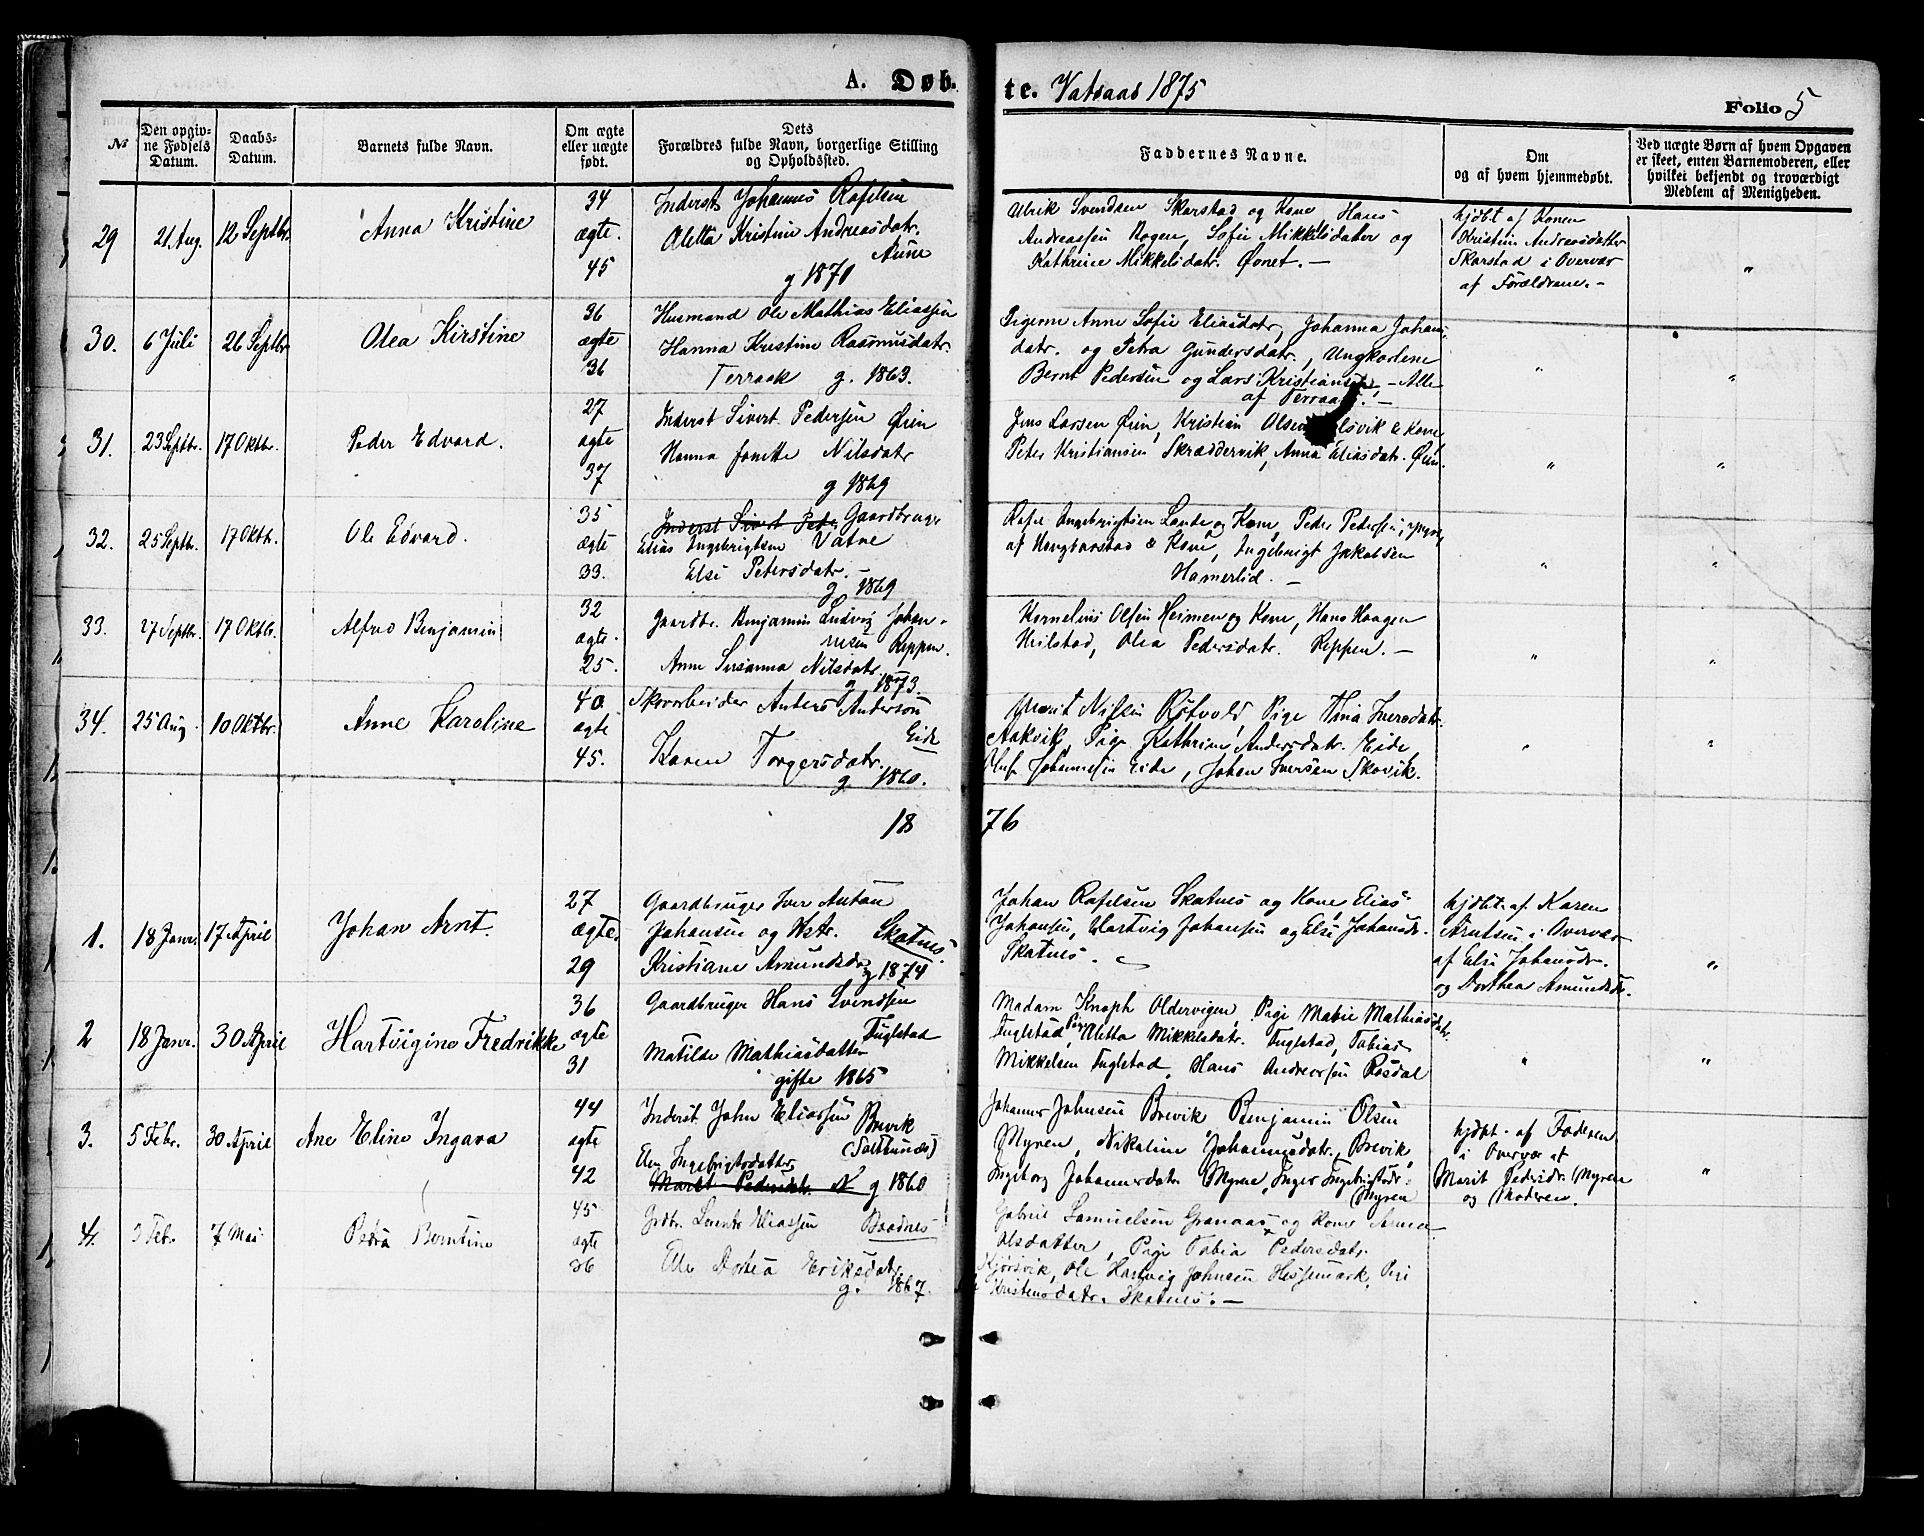 A. Døb-
te. Vatsaas 1875
Folio 5
№
Den opgiv-
ne Fødsels
Datum.
Daabs-
Datum.
Barnets fulde Navn.
Om ægte
eller uægte
født.
Dets
Forældres fulde Navn, borgerlige Stilling
og Opholdssted.
Faddernes Navne.
Om
og af hvem hjemmedøbt.
Ved uægte Børn af hvem Opgaven
er skeet, enten Barnemoderen, eller
hvilket bekjendt og troværdigt
Medlem af Menigheden.
29 21 Aug. 12 Septbr. Anna Kristine
34
ægte.
45
Inderst Johannes Rafelsen
Aletta Kristine Andreasdatr.
Aune
g 1870
Ulrik Svendsen Skarstad og Kone, Hans
Andreassen Hogen, Sofie Mikkelsdatter og
Kathrine Mikkelsdatr. Øvnet. —
hjdbt af Konen
Kristine Andreasdatter
Skarstad i Overvær
af Forældrene. -
"
30. 6 Juli 26 Septbr Olea Kirstine
36
ægte
36
Husmand Ole Mathias Eliassen
Hanna Kristine Rasmusdatr.
Terraak g. 1863.
Pigerne Anne Sofie Eliasdatr, Johanna Johans
datr. og Petra Gundersdatr., Ungkarlene
Bernt Pedersen og Lars Kristiansen, - Alle
af Terraak. —
" "
31. 23 Septbr. 17 Oktbr. Peder Edvard.
27
ægte
37
Inderst Sivert Pedersen Øren
Hanna Jonette Nilsdatr
g 1869
Jens Larsen Øien, Kristian Olsen & Kone,
Peter Kristiansen Skræddervik, Anna Eliasdatr. Øien.
" "
32. 25 Septbr. 17 Oktbr. Ole Edvard.
35
ægte
33.
Inderst Sivert Peder Gaardbruger
Elias Ingebrigtsen Vatne
Else Petersdatr. -
g 1869
Rafel Ingebrigtsen Lande og Kone, Peder Pedersen,
af Hongbarstad & Kone, Ingebrigt Jakobsen
Hamerlid. —
" "
33. 27 Septbr. 17 Oktbr. Alfred Benjamin
32
ægte.
25.
Gaardbr. Benjamin Ludvig Johan-
nesen Reppen.
Anne Susanna Nilsdatr.
g 1873.
Kornelius Olsen Heimen og Kone, Hans Haagen
Heilstad, Olea Pedersdatr. Reppen. —
" "
34. 25 Aug. 10 Oktbr. Anne Karoline
40
ægte
45.
Skovarbeider Anders Anderson
Eide
Karen Torgersdatr.
g. 1860.
Marit Nilsen Røtvold, Pige Thina Iversdatr.
Aakvik, Pige Kathrine Andersdatr. Eide,
Oluf Johannesen Eide, Johan Iversen Skovik.
" "
18 76
1. 18 Janr. 17 April Johan Arnt.
27
ægte.
29
Gaardbruger Iver Antau
Johansen og Hstr. Skatnes
Kristiane Amundsdr.
g 1874
Johan Rafelsen Skatnes og Kone, Elias
Johansen, Hartvig Johansen og Else Johansdr.
Skatnes.
hjdbt. af Karen
Arntsen i Overvær
af Else Johansdr.
og Dorthea Amundsdr.
"
2 18 Janr. 30 April Hartvigine Fredrikke
36
ægte
31
Gaardbruger Hans Svendsen
Fuglstad
Matilde Mathiasdatter
gifte 1865
Madam Knoph Oldervigen, Pige Marie Mathiasdatr.
Fuglstad, Pige Aletta Mikkelsdatr. Fuglstad, Tobias
Mikkelsen Fuglstad, Hans Andreassen Rosdal
" "
3. 5 Febr. 30 April Ane Eline Ingara
44
ægte
42
Inderst John Eliassen Brevik
Elen Ingebrigtsdatter
Marit Pedersdatr. N g 1860
Johannes Johnsen Brevik, Benjamin Olsen
Myren, Nikoline Johannesdatr. Brevik,
Ingeborg Johannesdatr Myren, Inger Ingebrigtsdr.
(Myren
hjdbt. af Faderen
i Overvær af
Marit Pedersdr. (Myren
og Moderen.
"
4. 3 Febr. 7 Mai Petra Berntine
45
ægte
36
Grdbr. Lorents Eliassen Baadnes
Elen Dortea Eriksdatr.
g. 1867.
Gabriel Samuelsen Granaas og Kone Anna
Olsdatter, Pige Tobia Pedersdatr.
Kjørsvik, Ole Hartvig Johnsen Hessemark, Pige
Kristensdatr. Skatnes. —